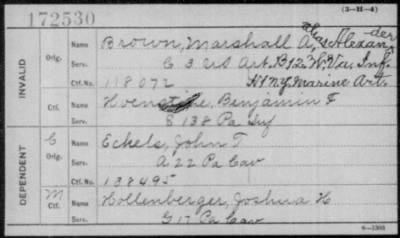 172530
(3—H—4)
INVALID
Orig.
Name Brown, Marshall A, alias Alexander
Serv. C 3 US Art. B 12 W. Va Inf.
Ctf. No. 118072 H 1 N.Y. Marine Art.
Ctf.
Name Benjamin F
Serv. 138 Pa Inf
DEPENDENT
C
Orig.
Name Eckels, John T
Serv. A 22 Pa Cav
Ctf. No. 138495
M
Ctf.
Name Hollenberger, Joshua H
Serv. G 17 Pa Cav